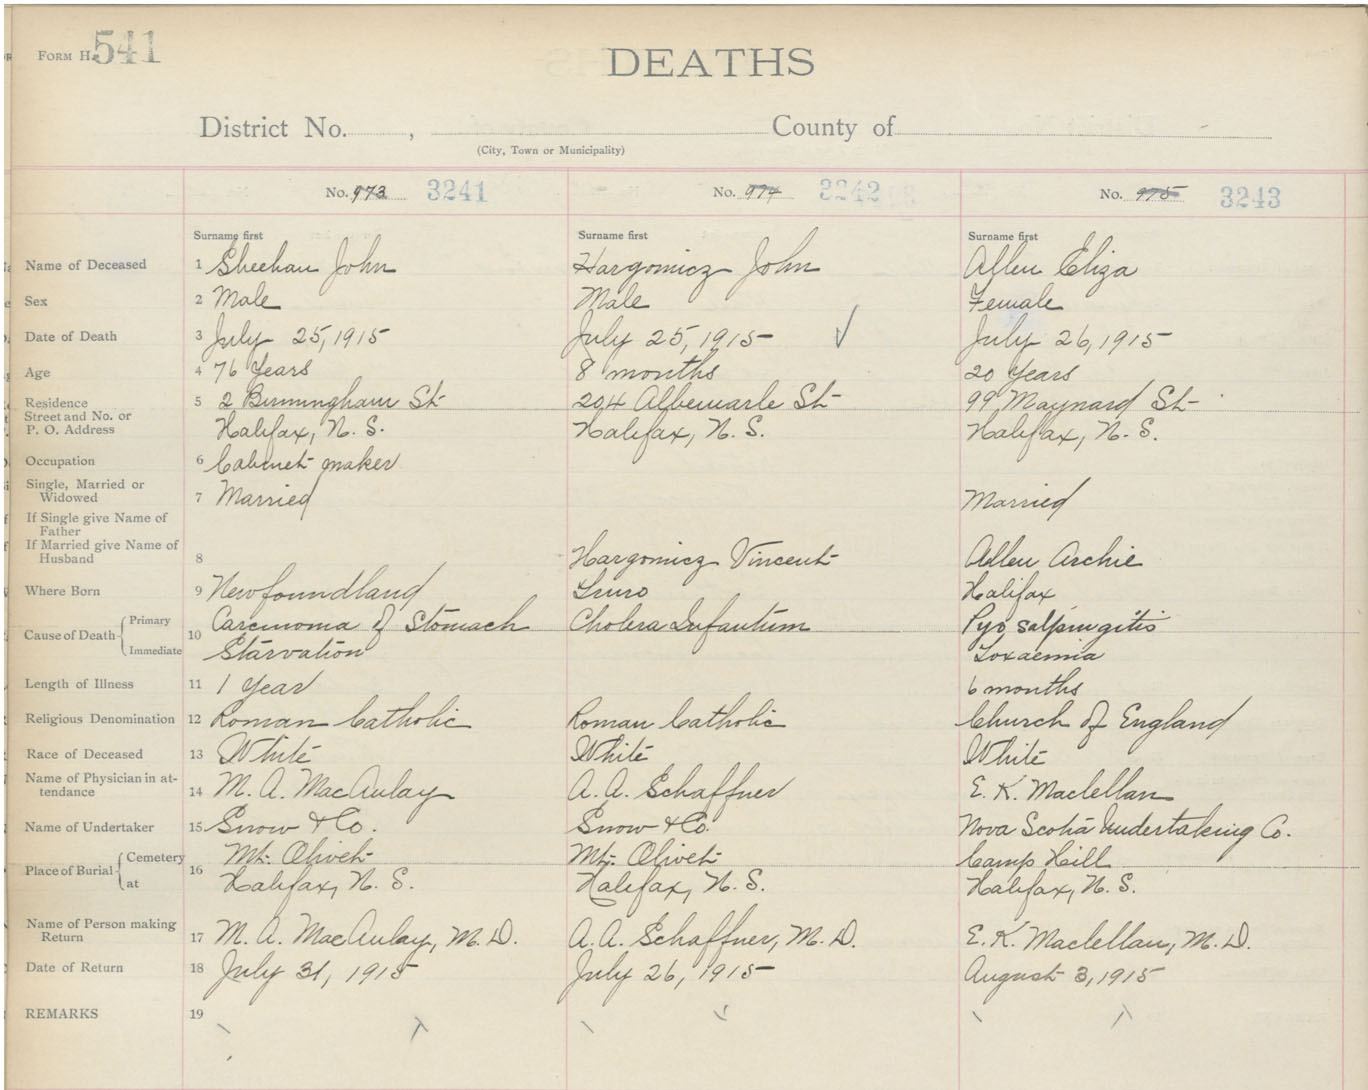 FORM H. 541
DEATHS
District No. , County of
(City, Town or Municipality)
No. 973 3241 No. 974 3242 No. 975 3243
Surname first Surname first Surname first
Name of Deceased 1 Sheehan John Hargomicz John Allen Eliza
Sex 2 Male Male Female
Date of Death 3 July 25, 1915 July 25, 1915 July 26, 1915
Age 4 76 Years 8 months 20 Years
Residence 5 2 Birmingham St 204 Albemarle St 99 Maynard St
Street and No. or
P. O. Address Halifax, N. S. Halifax, N. S. Halifax, N. S.
Occupation 6 Cabinet maker
Single, Married or
Widowed 7 Married Married
If Single give Name of
Father
If Married give Name of
Husband 8 Hargomicz Vincent Allen Archie
Where Born 9 Newfoundland Truro Halifax
Cause of Death Primary 10 Carcinoma of Stomach Cholera Infantum Pyo salpingitis
Immediate Starvation Toxaemia
Length of Illness 11 1 Year 6 months
Religious Denomination 12 Roman Catholic Roman Catholic Church of England
Race of Deceased 13 White White White
Name of Physician in at-
tendance 14 M. A. MacAulay A. A. Schaffner E. K. Maclellan
Name of Undertaker 15 Snow & Co. Snow & Co. Nova Scotia Undertaking Co.
Place of Burial Cemetery 16 Mt. Olivet Mt. Olivet Camp Hill
at Halifax, N. S. Halifax, N. S. Halifax, N. S.
Name of Person making
Return 17 M. A. MacAulay, M. D. A. A. Schaffner, M. D. E. K. Maclellan, M. D.
Date of Return 18 July 31, 1915 July 26, 1915 August 3, 1915
REMARKS 19